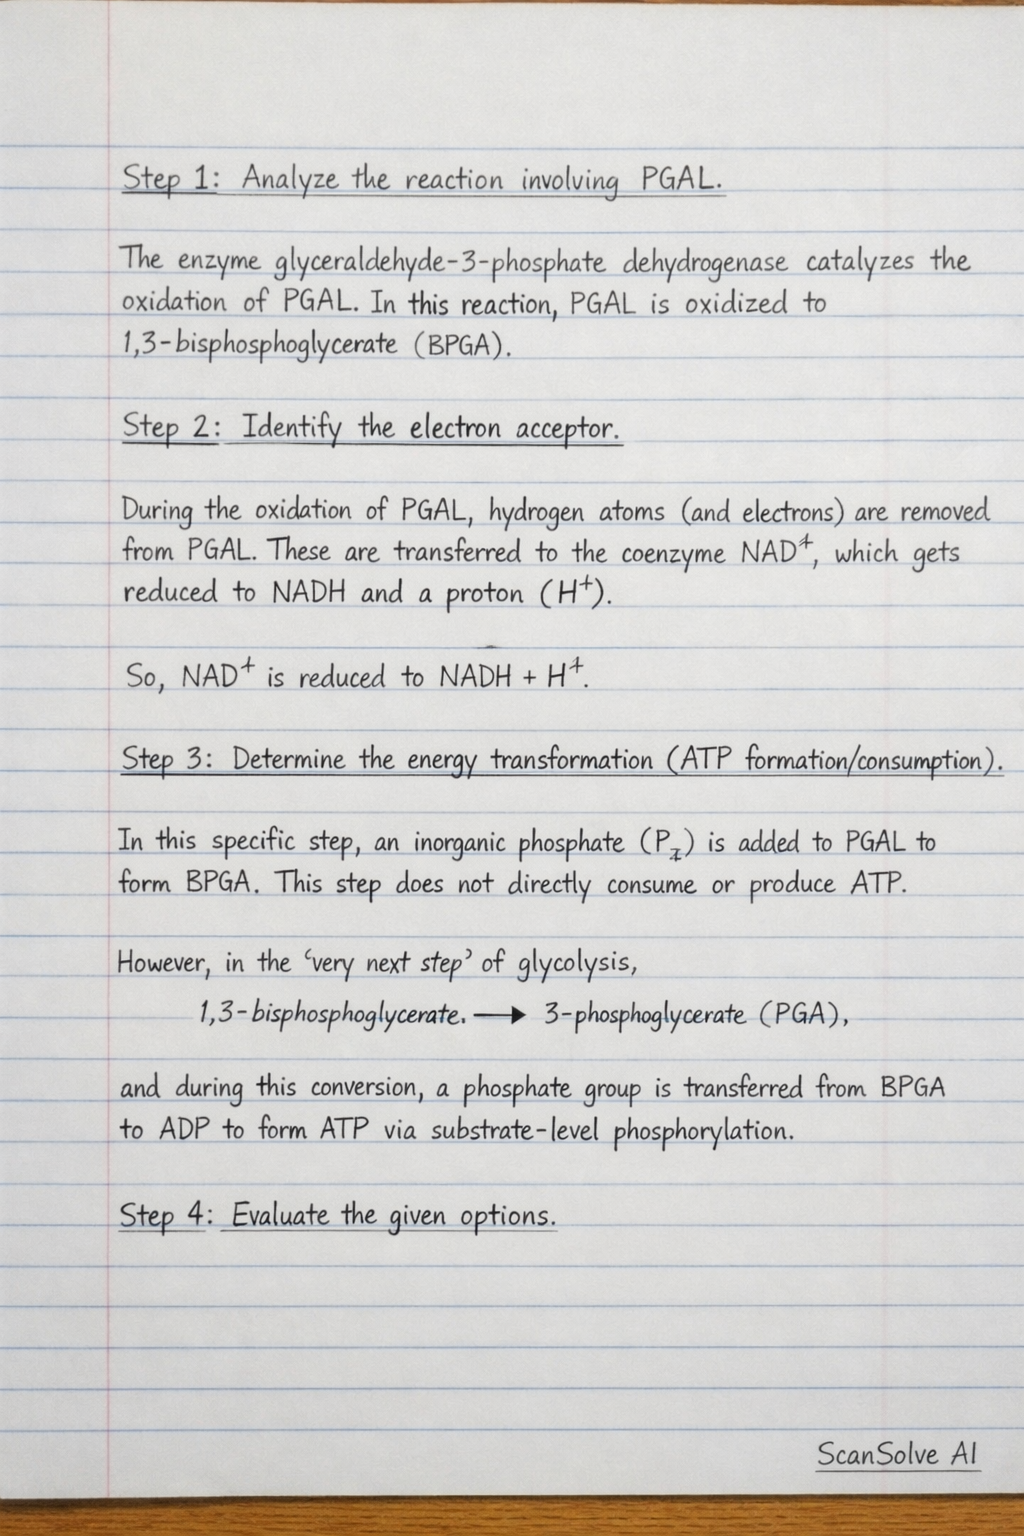 Step 1: Analyze the reaction involving PGAL.
The enzyme glyceraldehyde-3-phosphate dehydrogenase catalyzes the
oxidation of PGAL. In this reaction, PGAL is oxidized to
1,3-bisphosphoglycerate (BPGA).
Step 2: Identify the electron acceptor.
During the oxidation of PGAL, hydrogen atoms (and electrons) are removed
from PGAL. These are transferred to the coenzyme NAD⁺, which gets
reduced to NADH and a proton (H⁺).
So, NAD⁺ is reduced to NADH + H⁺.
Step 3: Determine the energy transformation (ATP formation/consumption).
In this specific step, an inorganic phosphate (P_I) is added to PGAL to
form BPGA. This step does not directly consume or produce ATP.
However, in the ‘very next step’ of glycolysis,
1,3-bisphosphoglycerate. → 3-phosphoglycerate (PGA),
and during this conversion, a phosphate group is transferred from BPGA
to ADP to form ATP via substrate-level phosphorylation.
Step 4: Evaluate the given options.
ScanSolve AI